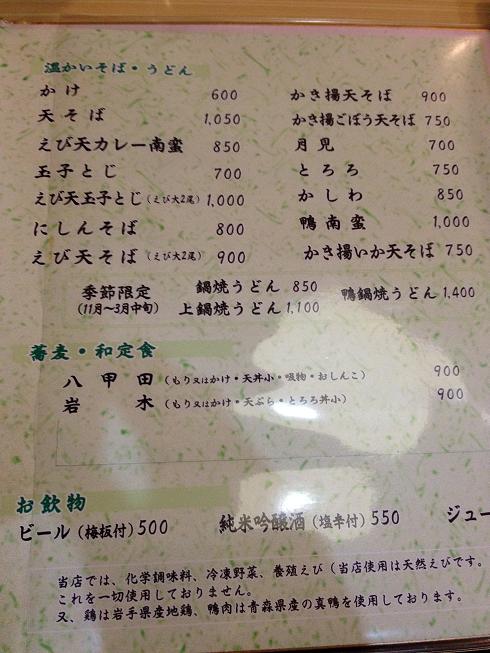 温かいそば・うどん
かけ 600
天そば 1,050
えび天カレー南蛮 850
玉子とじ 700
えび天玉子とじ（えび大2尾） 1,000
にしんそば 800
えび天そば（えび大2尾） 900
かき揚天そば 900
かき揚ごぼう天そば 750
月見 700
とろろ 750
かしわ 850
鴨南蛮 1,000
かき揚いか天そば 750
季節限定
(11月〜3月中旬)
鍋焼うどん 850
上鍋焼うどん 1,100
鴨鍋焼うどん 1,400
蕎麦・和定食
八甲田（もり又はかけ・天丼小・吸物・おしんこ） 900
岩木（もり又はかけ・天ぷら・とろろ丼小） 900
お飲物
ビール（梅板付）500
純米吟醸酒（塩辛付）550
ジュー
当店では、化学調味料、冷凍野菜、養殖えび（当店使用は天然えびです。
これを一切使用しておりません。
又、鶏は岩手県産地鶏、鴨肉は青森県産の真鴨を使用しております。